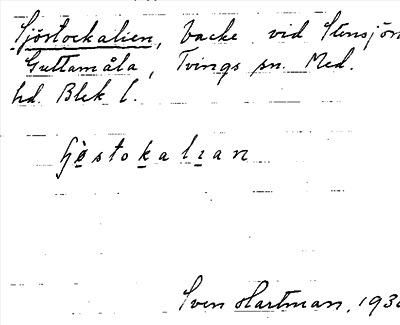 Sjöstockalien, backe vid Stensjön
Guttamåla, Tvings sn. Med.
hd. Blek l.
fjöstokalian
Sven Hartman, 193